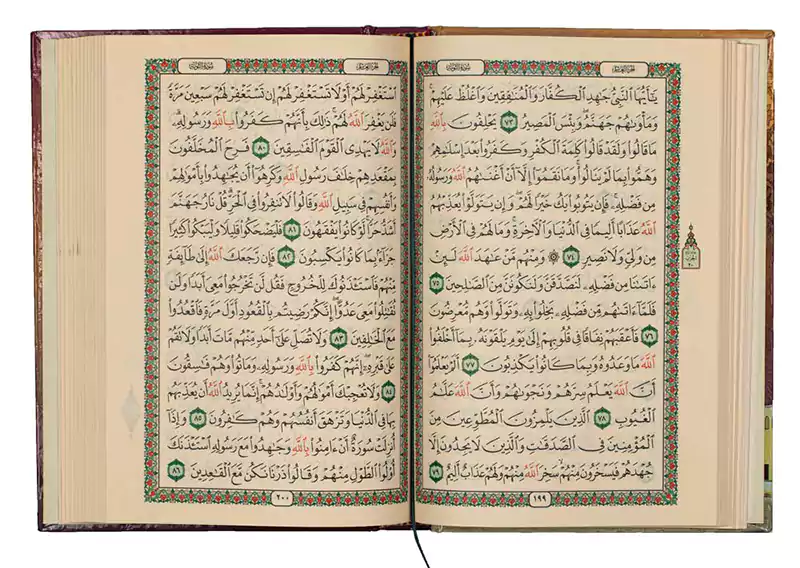 الجزء العاشر
سورة التوبة
يَـٰٓأَيُّهَا ٱلنَّبِيُّ جَـٰهِدِ ٱلۡكُفَّارَ وَٱلۡمُنَـٰفِقِينَ وَٱغۡلُظۡ عَلَيۡهِمۡۚ
وَمَأۡوَىٰهُمۡ جَهَنَّمُۖ وَبِئۡسَ ٱلۡمَصِيرُ ٧٣ يَحۡلِفُونَ بِٱللَّهِ
مَا قَالُواْ وَلَقَدۡ قَالُواْ كَلِمَةَ ٱلۡكُفۡرِ وَكَفَرُواْ بَعۡدَ إِسۡلَـٰمِهِمۡ
وَهَمُّواْ بِمَا لَمۡ يَنَالُواْۚ وَمَا نَقَمُوٓاْ إِلَّآ أَنۡ أَغۡنَىٰهُمُ ٱللَّهُ وَرَسُولُهُۥ
مِن فَضۡلِهِۦۚ فَإِن يَتُوبُواْ يَكُ خَيۡرٗا لَّهُمۡۖ وَإِن يَتَوَلَّوۡاْ يُعَذِّبۡهُمُ
ٱللَّهُ عَذَابًا أَلِيمٗا فِي ٱلدُّنۡيَا وَٱلۡأٓخِرَةِۚ وَمَا لَهُمۡ فِي ٱلۡأَرۡضِ
مِن وَلِيّٖ وَلَا نَصِيرٖ ٧٤ ۞ وَمِنۡهُم مَّنۡ عَـٰهَدَ ٱللَّهَ لَئِنۡ
ءَاتَىٰنَا مِن فَضۡلِهِۦ لَنَصَّدَّقَنَّ وَلَنَكُونَنَّ مِنَ ٱلصَّـٰلِحِينَ ٧٥
فَلَمَّآ ءَاتَىٰهُم مِّن فَضۡلِهِۦ بَخِلُواْ بِهِۦ وَتَوَلَّواْ وَّهُم مُّعۡرِضُونَ
٧٦ فَأَعۡقَبَهُمۡ نِفَاقٗا فِي قُلُوبِهِمۡ إِلَىٰ يَوۡمِ يَلۡقَوۡنَهُۥ بِمَآ أَخۡلَفُواْ
ٱللَّهَ مَا وَعَدُوهُ وَبِمَا كَانُواْ يَكۡذِبُونَ ٧٧ أَلَمۡ يَعۡلَمُوٓاْ
أَنَّ ٱللَّهَ يَعۡلَمُ سِرَّهُمۡ وَنَجۡوَىٰهُمۡ وَأَنَّ ٱللَّهَ عَلَّـٰمُ
ٱلۡغُيُوبِ ٧٨ ٱلَّذِينَ يَلۡمِزُونَ ٱلۡمُطَّوِّعِينَ مِنَ
ٱلۡمُؤۡمِنِينَ فِي ٱلصَّدَقَـٰتِ وَٱلَّذِينَ لَا يَجِدُونَ إِلَّا
جُهۡدَهُمۡ فَيَسۡخَرُونَ مِنۡهُمۡ سَخِرَ ٱللَّهُ مِنۡهُمۡ وَلَهُمۡ عَذَابٌ أَلِيمٌ ٧٩
١٩٩
الجزء العاشر
سورة التوبة
ٱسۡتَغۡفِرۡ لَهُمۡ أَوۡ لَا تَسۡتَغۡفِرۡ لَهُمۡ إِن تَسۡتَغۡفِرۡ لَهُمۡ سَبۡعِينَ مَرَّةٗ
فَلَن يَغۡفِرَ ٱللَّهُ لَهُمۡۚ ذَٰلِكَ بِأَنَّهُمۡ كَفَرُواْ بِٱللَّهِ وَرَسُولِهِۦۗ
وَٱللَّهُ لَا يَهۡدِي ٱلۡقَوۡمَ ٱلۡفَـٰسِقِينَ ٨٠ فَرِحَ ٱلۡمُخَلَّفُونَ
بِمَقۡعَدِهِمۡ خِلَـٰفَ رَسُولِ ٱللَّهِ وَكَرِهُوٓاْ أَن يُجَـٰهِدُواْ بِأَمۡوَٰلِهِمۡ
وَأَنفُسِهِمۡ فِي سَبِيلِ ٱللَّهِ وَقَالُواْ لَا تَنفِرُواْ فِي ٱلۡحَرِّۗ قُلۡ نَارُ جَهَنَّمَ
أَشَدُّ حَرّٗاۚ لَّوۡ كَانُواْ يَفۡقَهُونَ ٨١ فَلۡيَضۡحَكُواْ قَلِيلٗا وَلۡيَبۡكُواْ كَثِيرٗا
جَزَآءَۢ بِمَا كَانُواْ يَكۡسِبُونَ ٨٢ فَإِن رَّجَعَكَ ٱللَّهُ إِلَىٰ طَآئِفَةٖ
مِّنۡهُمۡ فَٱسۡتَـٔۡذَنُوكَ لِلۡخُرُوجِ فَقُل لَّن تَخۡرُجُواْ مَعِيَ أَبَدٗا وَلَن
تُقَـٰتِلُواْ مَعِيَ عَدُوًّاۖ إِنَّكُمۡ رَضِيتُم بِٱلۡقُعُودِ أَوَّلَ مَرَّةٖ فَٱقۡعُدُواْ
مَعَ ٱلۡخَـٰلِفِينَ ٨٣ وَلَا تُصَلِّ عَلَىٰٓ أَحَدٖ مِّنۡهُم مَّاتَ أَبَدٗا وَلَا تَقُمۡ
عَلَىٰ قَبۡرِهِۦٓۖ إِنَّهُمۡ كَفَرُواْ بِٱللَّهِ وَرَسُولِهِۦ وَمَاتُواْ وَهُمۡ فَـٰسِقُونَ
٨٤ وَلَا تُعۡجِبۡكَ أَمۡوَٰلُهُمۡ وَأَوۡلَـٰدُهُمۡۚ إِنَّمَا يُرِيدُ ٱللَّهُ أَن يُعَذِّبَهُم
بِهَا فِي ٱلدُّنۡيَا وَتَزۡهَقَ أَنفُسُهُمۡ وَهُمۡ كَـٰفِرُونَ ٨٥ وَإِذَآ
أُنزِلَتۡ سُورَةٌ أَنۡ ءَامِنُواْ بِٱللَّهِ وَجَـٰهِدُواْ مَعَ رَسُولِهِ ٱسۡتَـٔۡذَنَكَ
أُوْلُواْ ٱلطَّوۡلِ مِنۡهُمۡ وَقَالُواْ ذَرۡنَا نَكُن مَّعَ ٱلۡقَـٰعِدِينَ ٨٦
٢٠٠